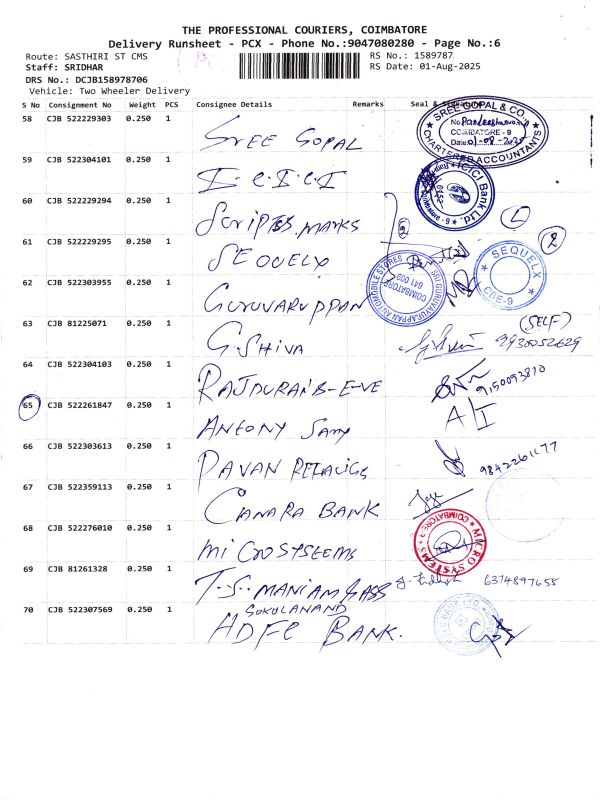 THE PROFESSIONAL COURIERS, COIMBATORE
Delivery Runsheet - PCX - Phone No.:9047080280 - Page No.:6
Route: SASTHIRI ST CMS
RS No.: 1589787
Staff: SRIDHAR
RS Date: 01-Aug-2025
DRS No.: DCJB158978706
Vehicle: Two Wheeler Delivery
S No Consignment No Weight PCS Consignee Details Remarks Seal &
58 CJB 522229303 0.250 1 SREE GOPAL
SREE GOPAL & CO.
COIMBATORE - 9
Date: 01-08-2025
CHARTERED ACCOUNTANTS
59 CJB 522304101 0.250 1 I.C.I.C.I
ICICI Bank Ltd.
60 CJB 522229294 0.250 1 MARKS
1
61 CJB 522229295 0.250 1 SEQUELX
2
SEQUELX
CBE-9
62 CJB 522303955 0.250 1 GURUVARUPPAN
SRI GURUVAYURAPPAN AUTOMOBILE STORES
COIMBATORE
641 009
63 CJB 81225071 0.250 1 G.SHIVA (SELF)
64 CJB 522304103 0.250 1 9150093810
65 CJB 522261847 0.250 1 ANTONY Samy
66 CJB 522303613 0.250 1 PAVAN
67 CJB 522359113 0.250 1 CANARA BANK
68 CJB 522276010 0.250 1 MICROSYSTEMS
MICRO SYSTEMS
COIMBATORE-9
69 CJB 81261328 0.250 1 T.S. MANIAM & ASS 6374897655
GOKULANAND
70 CJB 522307569 0.250 1 HDFC BANK.
BANK LTD.